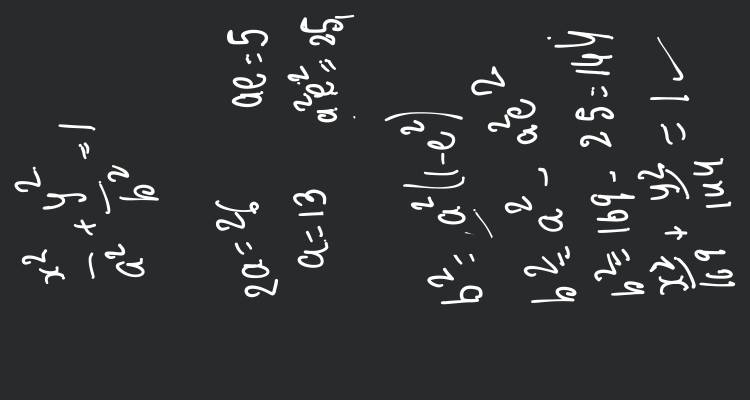 x²/a² + y²/b² = 1
2a = 26 ae = 5
a = 13 a²e² = 25,
b² = a²(1-e²)
b² = a² - a²e²
b² = 169 - 25 = 144
x²/169 + y²/144 = 1 ✓